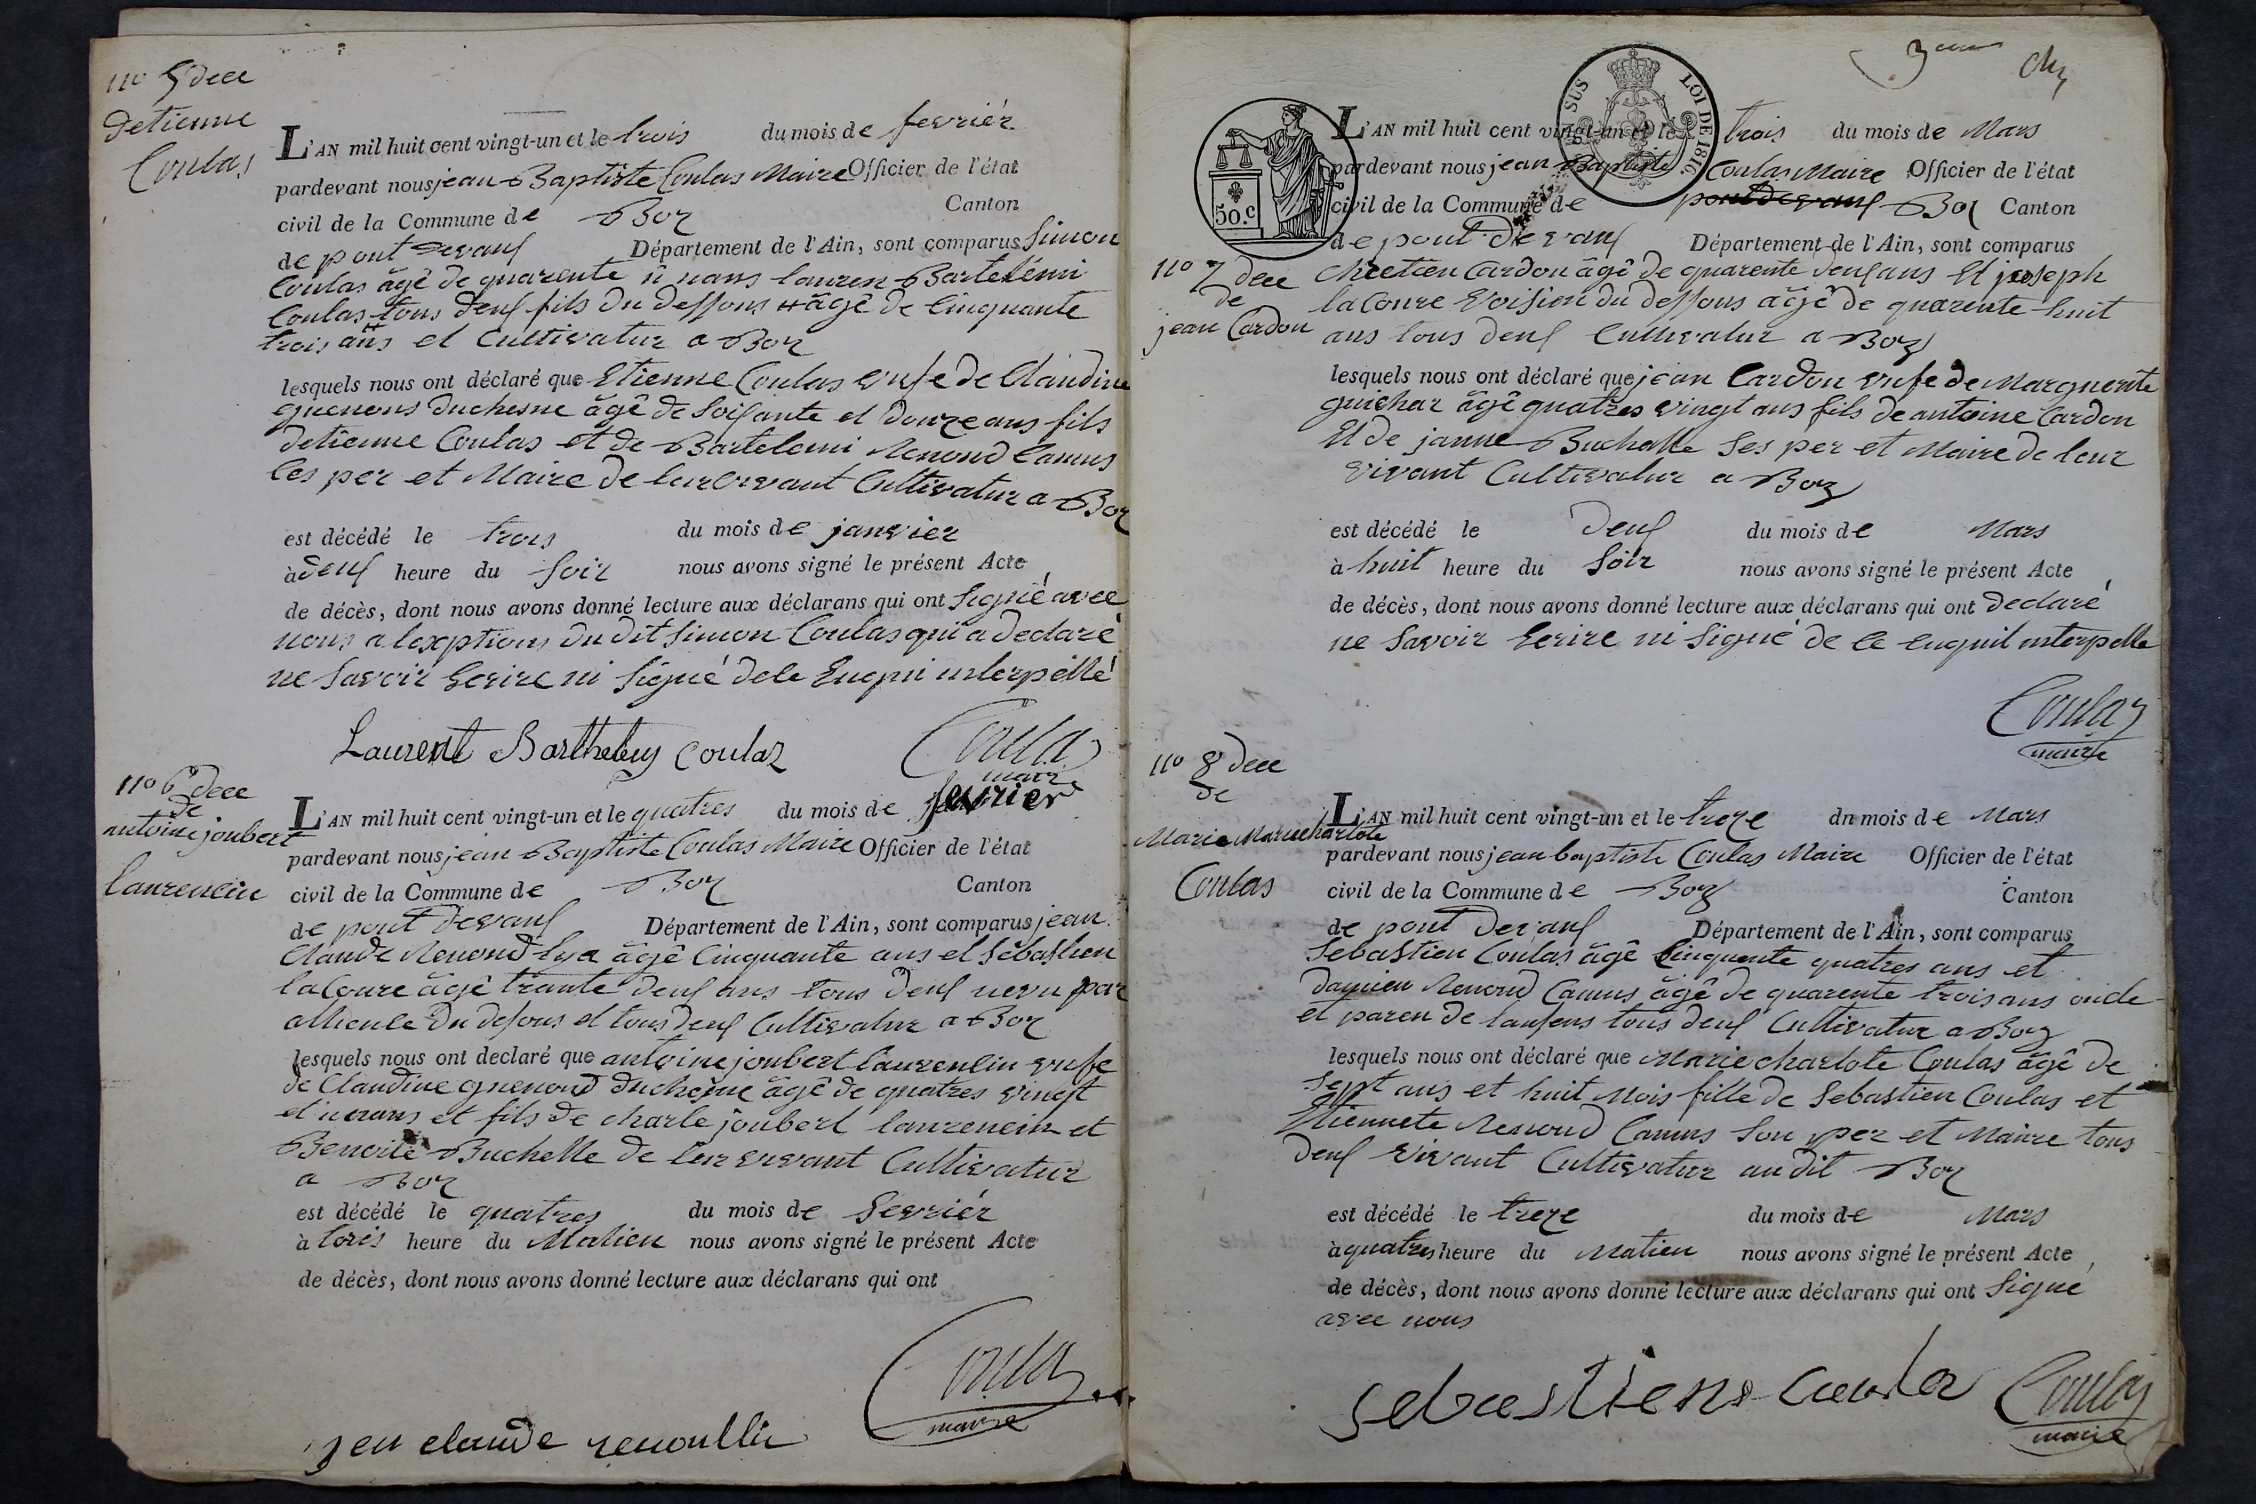 no 5 dece
detienne
Coulas
L'AN mil huit cent vingt-un et le trois du mois de fevriér
pardevant nous jean Baptiste Coulas Maire Officier de l'état
civil de la Commune de Boz Canton
de pont devaux Département de l'Ain, sont comparus Simon
Coulas âgê de quarente û nans lauren Bartelémi
Coulas tous deux fils du dessous # âgê de Cinquante
trois ans et Cultivatur a Boz
lesquels nous ont déclaré que Etienne Coulas vufe de Claudine
guenons duchesne âgê de Soisante et douze ans fils
detienne Coulas et de Bartelemi Renoud Camus
Ces per et Maire de leur vivant Cultivatur a Boz
est décédé le trois du mois de janvier
à deux heure du Soir nous avons signé le présent Acte
de décès, dont nous avons donné lecture aux déclarans qui ont Signé avec
nous a lexption du dit Simon Coulas qui a declaré
ne Savoir Ecrire ni Signé de le Enqui interpéllé
Laurent Barthelemy Coulaz
Coulas
maire
no 6 dece
de
antoine joubert
laurencin
L'AN mil huit cent vingt-un et le quatres du mois de fevrier
pardevant nous jean Baptiste Coulas Maire Officier de l'état
civil de la Commune de Boz Canton
de pont devaux Département de l'Ain, sont comparus jean
Claude Renoud âgê Cinquante ans et Sébastien
laCoure âgê trante deux ans tous deux nevu par
allience du desous et tous deux Cultivatur a Boz
lesquels nous ont declaré que antoine joubert laurencin vufe
de Claudine guenoud duchesne âgê de quatres vingt
et unans et fils de charle joubert laurencin et
Benoite Buchelle de leur vivant Cultivatur
a Boz
est décédé le quatres du mois de Fevriér
à torés heure du Matien nous avons signé le présent Acte
de décès, dont nous avons donné lecture aux déclarans qui ont
Coulas
maire
jen claude renoullia
3
SUS
LOI DE 1816
50.c
L'AN mil huit cent vingt-un et le trois du mois de Mars
pardevant nous jean Baptiste Coulas Maire Officier de l'état
civil de la Commune de pont devaux Boz Canton
de pont devaux Département de l'Ain, sont comparus
no 7 dece
de
jean Cardon
chretien Cardon âgê de quarente deux ans et joseph
laCoure voision du dessous âgê de quarente huit
ans tous deux Cultivatur a Boz
lesquels nous ont déclaré que jean Cardon vufe de Marguerite
guichar âgê quatres vingt ans fils de antoine Cardon
Et de janne Buchalle Ses per et Maire de leur
vivant Cultivatur a Boz
est décédé le deux du mois de Mars
à huit heure du Soir nous avons signé le présent Acte
de décès, dont nous avons donné lecture aux déclarans qui ont declaré
ne Savoir Ecrire ni Signé de Ce Enquil interpelle
Coulas
maire
no 8 dece
de
Marie Marie charlote
Coulas
L'AN mil huit cent vingt-un et le treze dn mois de Mars
pardevant nous jean baptiste Coulas Maire Officier de l'état
civil de la Commune de Boz Canton
de pont devaux Département de l'Ain, sont comparus
Sebastien Coulas âgê Cinquente quatres ans et
damien Renoud Camus âgê de quarente trois ans oncle
et paren de lanfens tous deux Cultivatur a Boz
lesquels nous ont déclaré que Marie charlote Coulas âgê de
Sept ans et huit Mois fille de Sebastien Coulas et
Etiennete Renoud Camus Son per et Maire tous
deux vivant Cultivatur au dit Boz
est décédé le treze du mois de Mars
à quatres heure du Matien nous avons signé le présent Acte
de décès, dont nous avons donné lecture aux déclarans qui ont Signé
avec nous
Sebastiens Caula
Coulas
maire